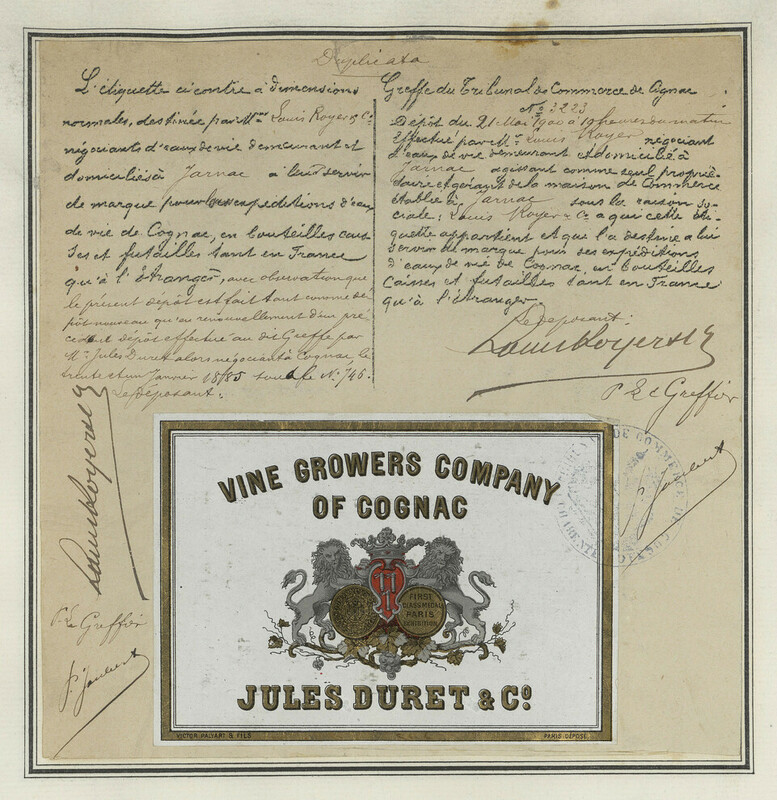 Duplicata
L'étiquette ci contre à dimensions
normales, destinée par Mrs Louis Royer & Co
négociants d'eaux de vie demeurant et
domiciliés à Jarnac à leur servir
de marque pour les expéditions d'eaux
de vie de Cognac, en bouteilles cais
ses et futailles tant en France
qu'à l'étranger, avec observation que
le présent dépôt est fait tant comme dé
pôt nouveau qu'en renouvellement d'un pré
cédent dépôt effectué au dit Greffe par
Mr Jules Duret alors négociant à Cognac, le
trente et un Janvier 1885 sous le No 746.
Le Déposant.
Louis Royer & Co
P Le Greffier
P. Joubert
Greffe du Tribunal de Commerce de Cognac
No 3223
Dépôt du 21 Mai 1900 à heures du matin
Effectué par Mr Louis Royer négociant
d'eaux de vie demeurant et domicilié à
Jarnac agissant comme seul proprié-
taire et gérant de la maison de Commerce
établie à Jarnac sous la raison so-
ciale: Louis Royer & Co a qui cette éti-
quette appartient et que l'a destine a lui
servir de marque pour ses expéditions
d'eaux de vie de Cognac, en bouteilles
Caisses et futailles tant en France
qu'à l'étranger
Le Déposant.
Louis Royer & Co
P Le Greffier
P. Joubert
DE COMMERCE DE
CHARENTE
VINE GROWERS COMPANY
OF COGNAC
FIRST
CLASS MEDAL
PARIS
EXHIBITION
JULES DURET & Co.
VICTOR PALYART & FILS
PARIS DÉPOSÉ